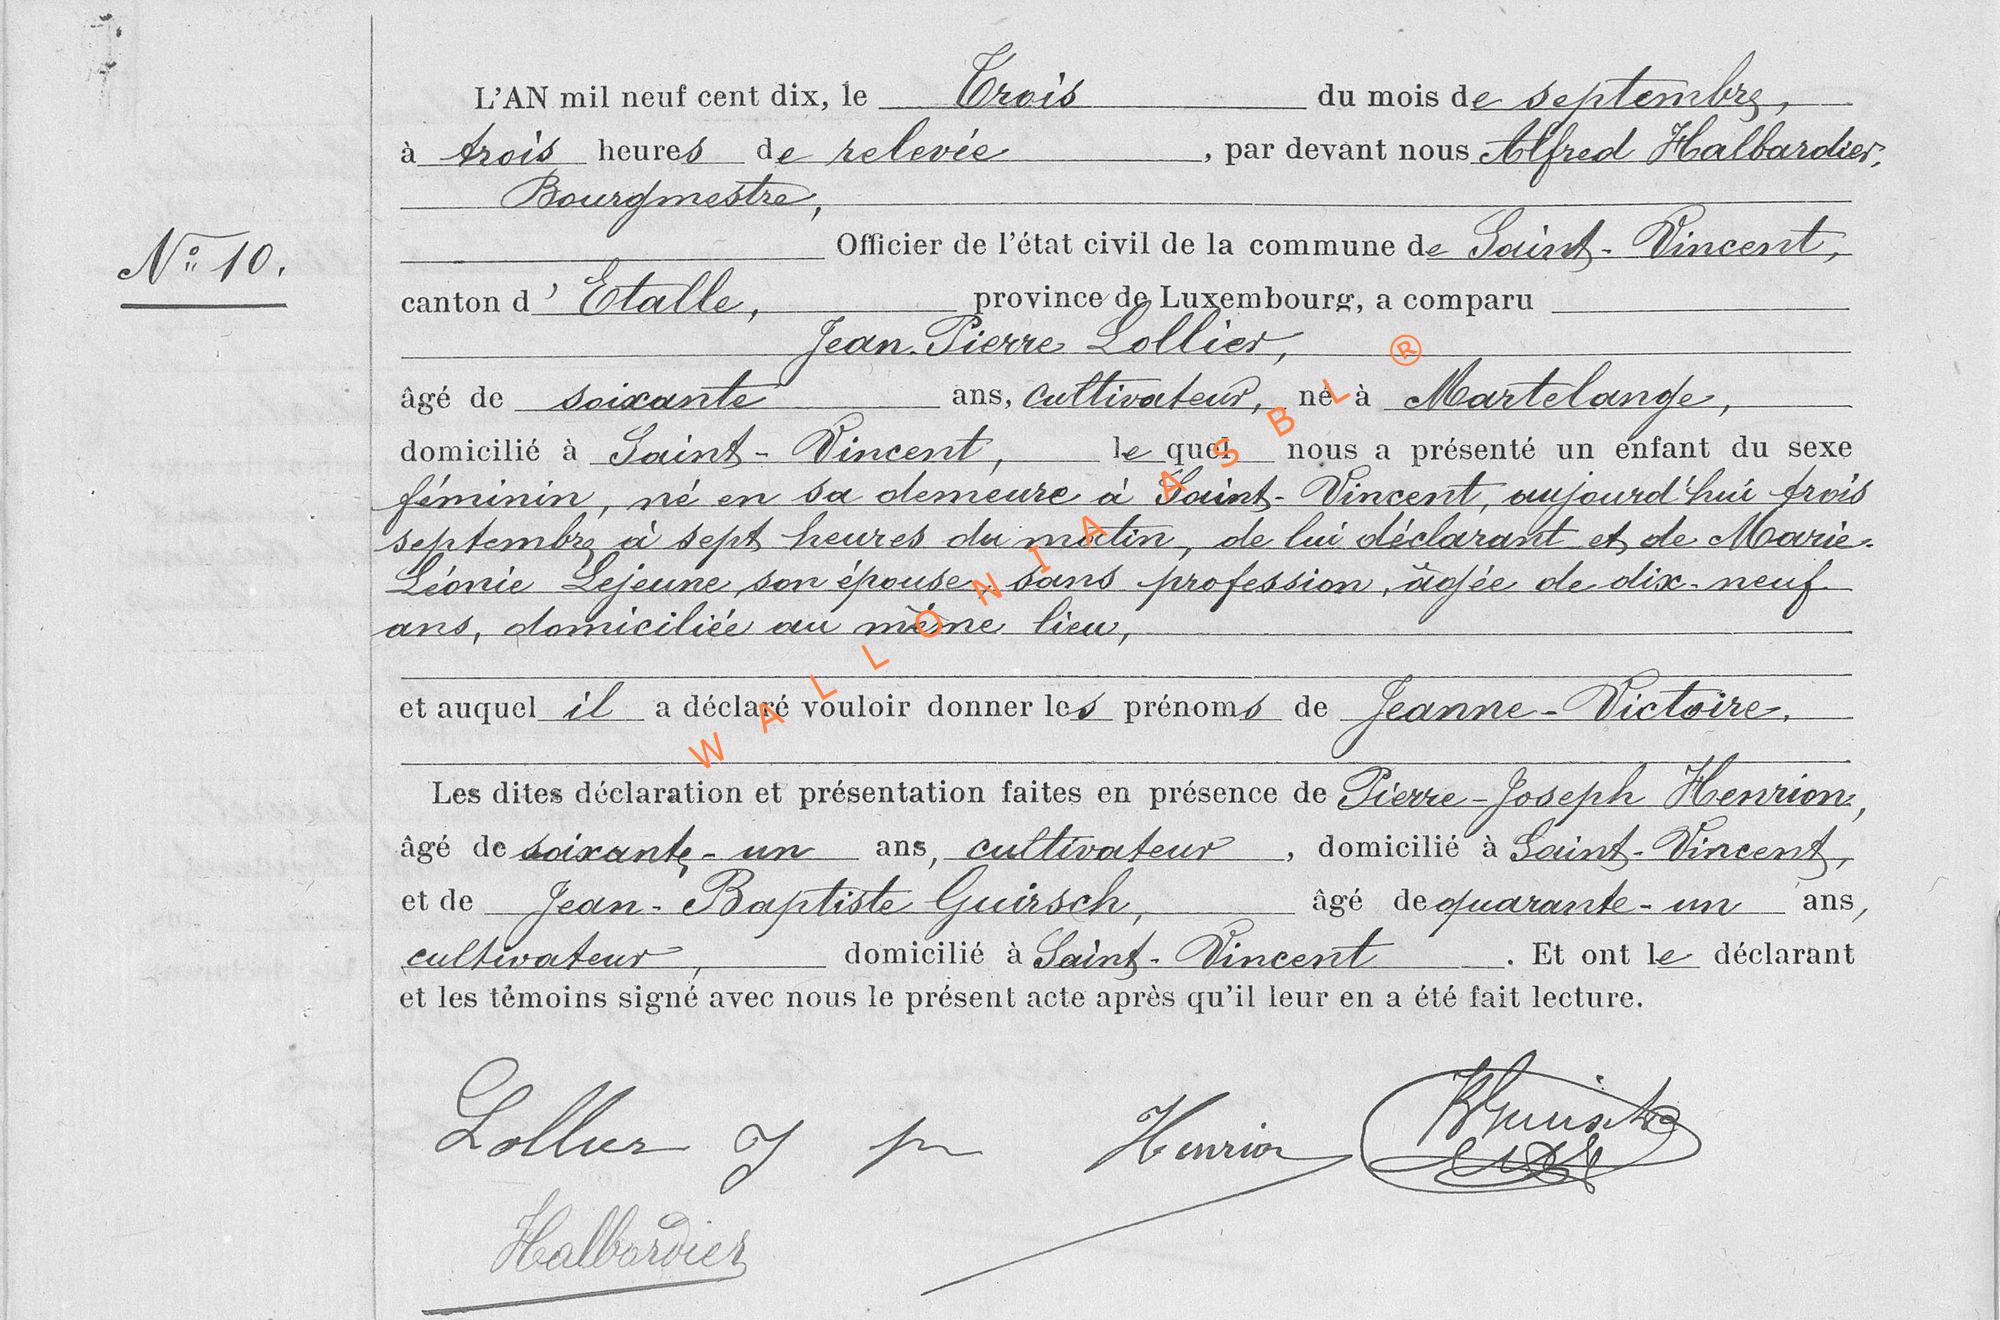 L'AN mil neuf cent dix, le Trois du mois de septembre,
à trois heures de relevée, par devant nous Alfred Halbardier,
Bourgmestre,
N° 10.
Officier de l'état civil de la commune de Saint-Vincent,
canton d'Etalle, province de Luxembourg, a comparu
Jean-Pierre Lollier,
âgé de soixante ans, cultivateur, né à Martelange,
domicilié à Saint-Vincent, le quel nous a présenté un enfant du sexe
féminin, né en sa demeure à Saint-Vincent, aujourd'hui trois
septembre à sept heures du matin, de lui déclarant et de Marie-
Léonie Lejeune son épouse, sans profession, âgée de dix-neuf
ans, domiciliée au même lieu,
et auquel il a déclaré vouloir donner les prénoms de Jeanne-Victoire.
Les dites déclaration et présentation faites en présence de Pierre-Joseph Henrion,
âgé de soixante-un ans, cultivateur, domicilié à Saint-Vincent,
et de Jean-Baptiste Guirsch, âgé de quarante-un ans,
cultivateur, domicilié à Saint-Vincent. Et ont le déclarant
et les témoins signé avec nous le présent acte après qu'il leur en a été fait lecture.
Lollier J p Henrion Guirsch
Halbardier
WALLONIA ASBL ®